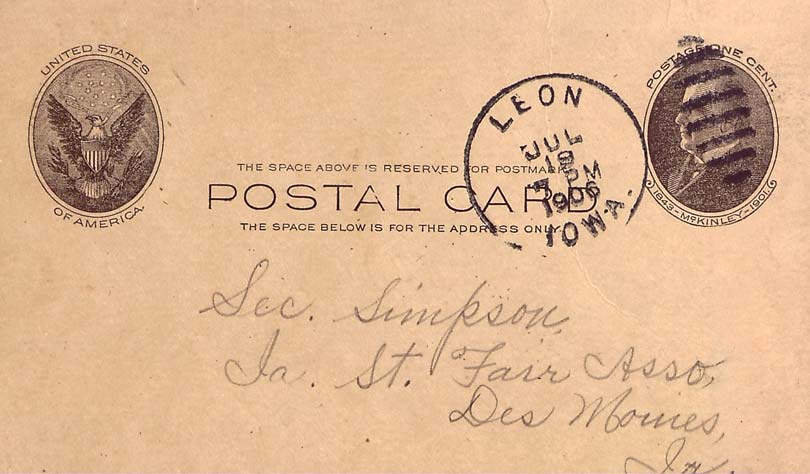 UNITED STATES
OF AMERICA.
POSTAGE ONE CENT.
1843-McKINLEY-1901.
LEON
JUL
18
PM
1906
IOWA.
THE SPACE ABOVE IS RESERVED FOR POSTMARK.
POSTAL CARD
THE SPACE BELOW IS FOR THE ADDRESS ONLY.
Sec. Simpson,
Ia. St. Fair Asso,
Des Moines,
Ia.